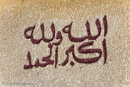 الله اكبر
ولله الحمد